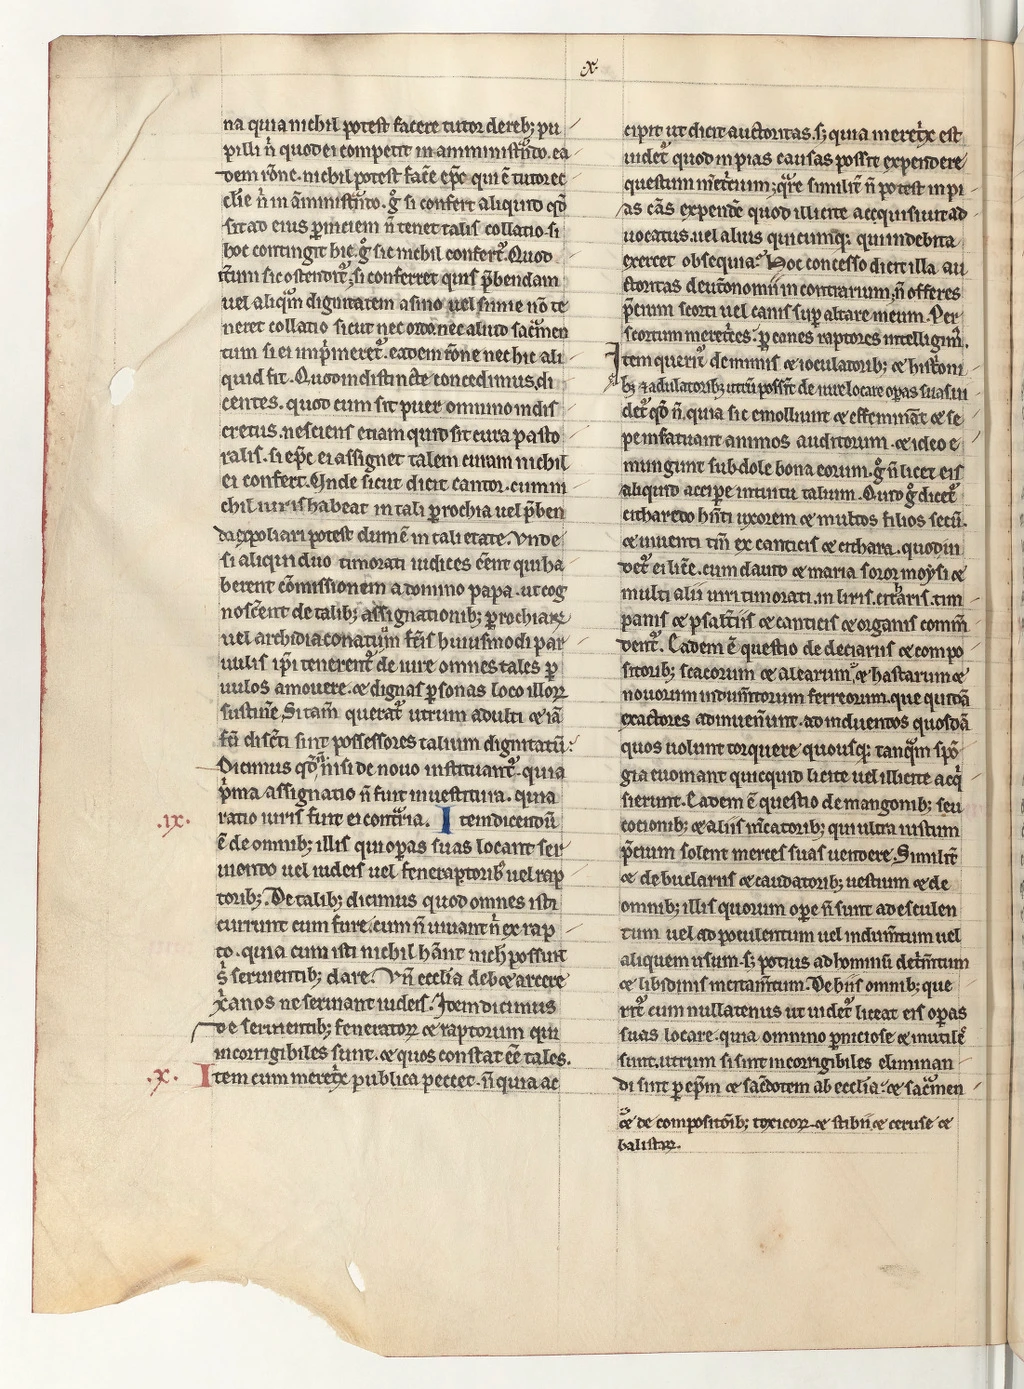 .x.
na quia nichil potest facere tutor de reb; pu
pilli n̄ quod ei competit in amministr̄ato. ea
dem rōne. nichil potest fac̄e ep̄c qui ē tutor ec
clīe n̄ in āministr̄ando. g̊ si confert aliquid qd̄
sit ad eius p̄niciem n̄ tenet talis collatio. si
hoc contingit hic. g̊ sic nichil confert᷑. Quod
it̄um sic ostendit᷑; si conferret quis p̄bendam
uel aliqm̄ dignitatem asino uel simie nō te
neret collatio sicut nec ordo. nec aliud sac̄men
tum si ei imp̄meret᷑. eadem rōne nec hic ali
quid fit. Quod indistincte concedimus. di
centes. quod cum sit puer omnino indis
cretus. nesciens etiam quid sit cura pasto
ralis. si ep̄c ei assignet talem curam nichil
ei confert. Unde sicut dicit cantor. cum ni
chil iuris habeat in tali ꝑrochia uel p̄ben
da expoliari potest dum ē in tali etate. Vnde
si aliqui duo timorati iudices ēent qui ha
berent cōmissionem a domino papa. ut cog
noscent de talib; assignationib; ꝑrochiaꝝ
uel archidiaconatuum fc̄is huiusmodi par
uulis ip̄i tenerent᷑ de iure omnes tales ꝑ
uulos amouere. ⁊ dignas ꝑsonas loco illoꝝ
sustine. Si tam̄ querat᷑ utrum adulti ⁊ iā
fc̄i discr̄ti sint possessores talium dignitatū:
Dicimus qd̄ n̄ nisi de nouo instituant᷑. quia
p̄ma assignatio n̄ fuit inuestitura. quia
ratio iuris fuit ei cont̄ria. Item dicendū
.ix.
ē de omnib; illis qui opas suas locant ser
uiendo uel iudeis uel feneratorib; uel rap
torib;. De talib; dicimus quod omnes isti
currunt cum fure. cum n̄ uiuant n̄ ex rap
to. quia cum isti nichil hānt nich possunt
s̄ seruientib; dare. Vn̄ ecclia debet arcere
xānos ne seruiant iudeis. Item dicimus
de seruientib; feneratoꝝ ⁊ raptorum qui
incorrigibiles sunt. ⁊ quos constat ēe tales.
.x.
Item cum meret̄x publica peccet. n̄ quia ac
cipit ut dicit auctoritas. s; quia meret̄x est
uidet᷑ quod in pias causas possit expendere
questum met̄cium; q̄re similit᷑ n̄ potest in pi
as cās expende quod illicite acquisiuit ad
uocatus. uel alius quicumq; qui indebita
exercet obsequia. Hoc concesso dicit illa au
ctoritas deut̄onomii in contrarium; n̄ offeres
p̄cium scorti uel canis sup altare meum. Per
scortum meret̄ces. ꝑ canes raptores intelligim᷒.
Item querit᷑ de mimis ⁊ ioculatorib; ⁊ histrioni
b; ⁊ adulatorib; utrū possint de iure locare opas suas. ui
det᷑ qd̄ n̄. quia sic emolliunt ⁊ effeminant ⁊ se
pe infatuant animos auditorum. ⁊ ideo e
mungunt sub dole bona eorum. g̊ n̄ licet eis
aliquid accipe intuitu talium. Quid g̊ dicet᷑
citharedo hn̄ti uxorem ⁊ multos filios secū.
⁊ uiuenti tm̄ ex canticis ⁊ cithara. quod ui
det᷑ ei lic̄e. cum dauid ⁊ maria soror moysi ⁊
multi alii uiri timorati. in liris. citharis. tim
panis ⁊ psalt̄iis ⁊ canticis ⁊ organis comm̄
dent᷑. Eadem ē questio de deciariis ⁊ compo
sitorib; scacorum ⁊ alearum. ⁊ hastarum ⁊
nouorum indum̄torum ferreorum. que quidā
exactores adinuen̄unt. ad induendos quosdā
quos uolunt torquere quousq; tanqm̄ spō
gia euomant quicquid licite uel illicite acq̄
sierunt. Eadem ē questio de mangonib; seu
cocionib; ⁊ aliis m̄catorib; qui ultra iustum
p̄cium solent merces suas uendere. Similit᷑
⁊ de buclariis ⁊ caudatorib; uestium ⁊ de
omnib; illis quorum ope n̄ sunt ad esculen
tum uel ad poculentum uel indum̄tum uel
aliquem usum. s; potius ad hominū det̄m̄tum
⁊ libidinis incitam̄tum. De hiis omnib; que
rit᷑ cum nullatenus ut uidet᷑ liceat eis opas
suas locare. quia omnino ꝑniciose ⁊ inutiles
sunt. utrum si sint incorrigibiles eliminan
di sint ꝑ ep̄m ⁊ sac̄dotem ab ecclia. ⁊ sac̄men
⁊ de compositorib; toxicoꝝ ⁊ stibii ⁊ ceruse ⁊
balistaꝝ.